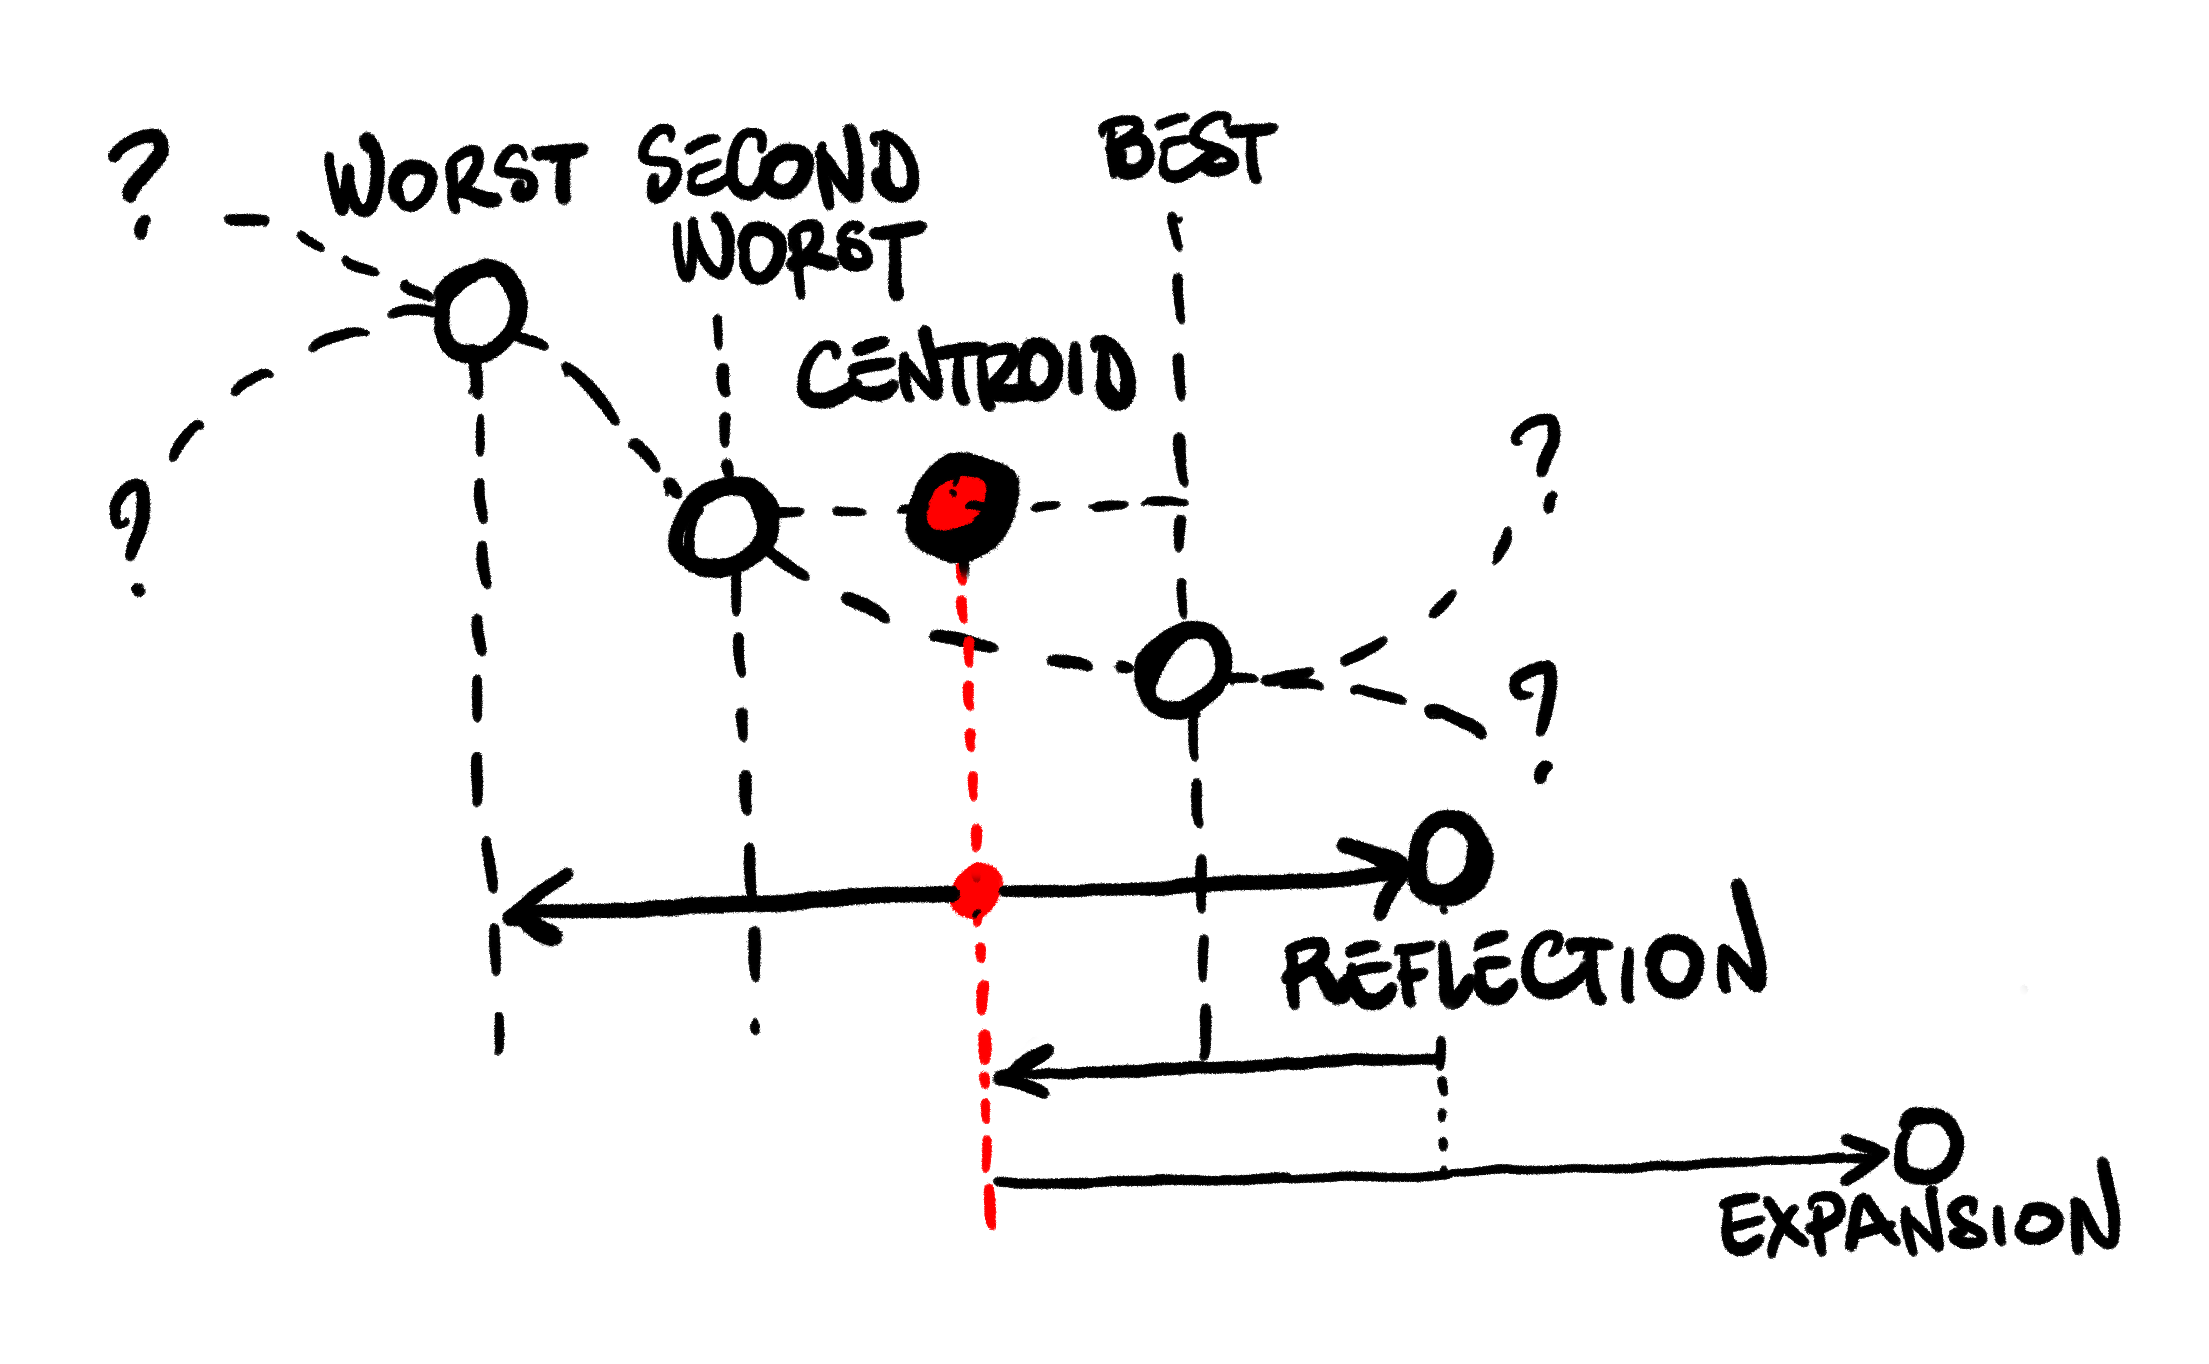 ?
WORST
SECOND
WORST
BEST
CENTROID
?
?
?
REFLECTION
EXPANSION